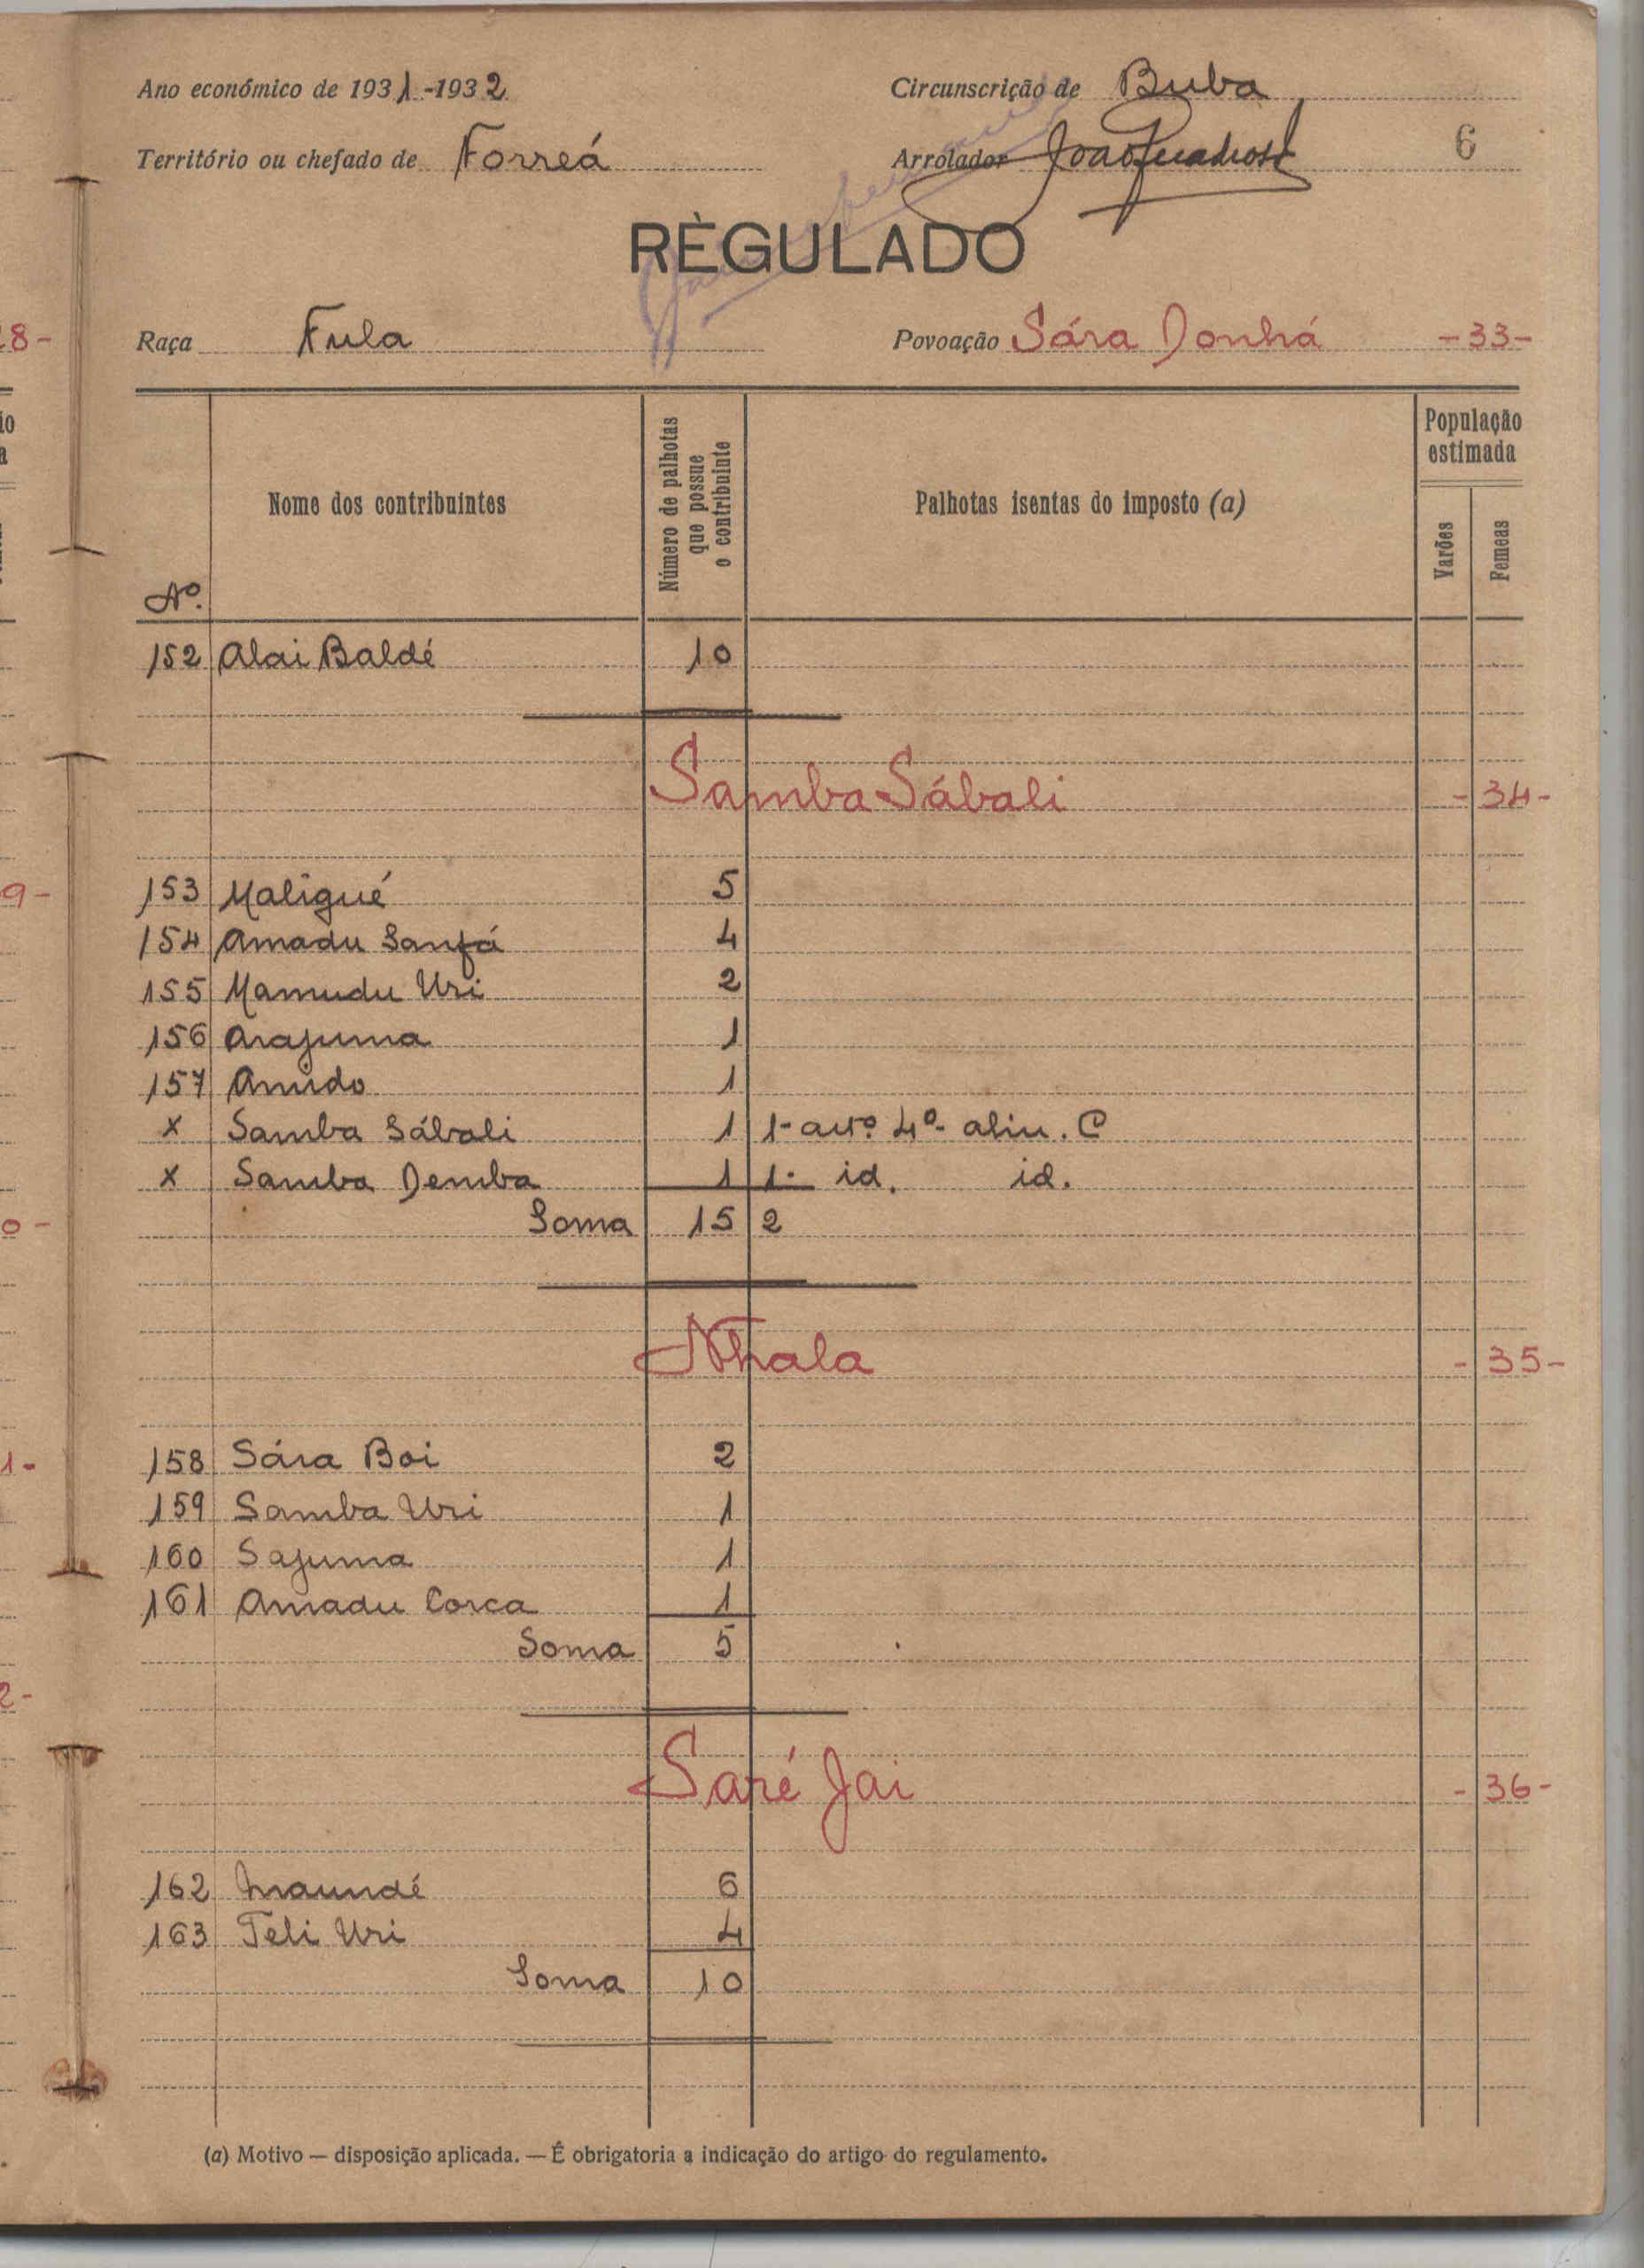 Ano económico de 1931-1932 Circunscrição de Buba
Território ou chefado de Forreá Arrolador 6
RÈGULADO
Raça Fula Povoação Sára Donhá -33-
Nº. Nome dos contribuintes Número de palhotas que possue o contribuinte Palhotas isentas do imposto (a) População estimada Varões Femeas
152 Alai Baldé 10
Samba Sábali -34-
153 Maligué 5
154 Amadu Sanfá 4
155 Mamudu Uri 2
156 Arajuma 1
157 Amido 1
x Samba Sábali 1 1- artº. 4º- alin. C
x Samba Demba 1 1- id. id.
Soma 15 2
Nhala -35-
158 Sára Boi 2
159 Samba Uri 1
160 Sajuma 1
161 Amadu Corca 1
Soma 5
Saré Jai -36-
162 Maundé 6
163 Teli Uri 4
Soma 10
(a) Motivo — disposição aplicada. — É obrigatoria a indicação do artigo do regulamento.